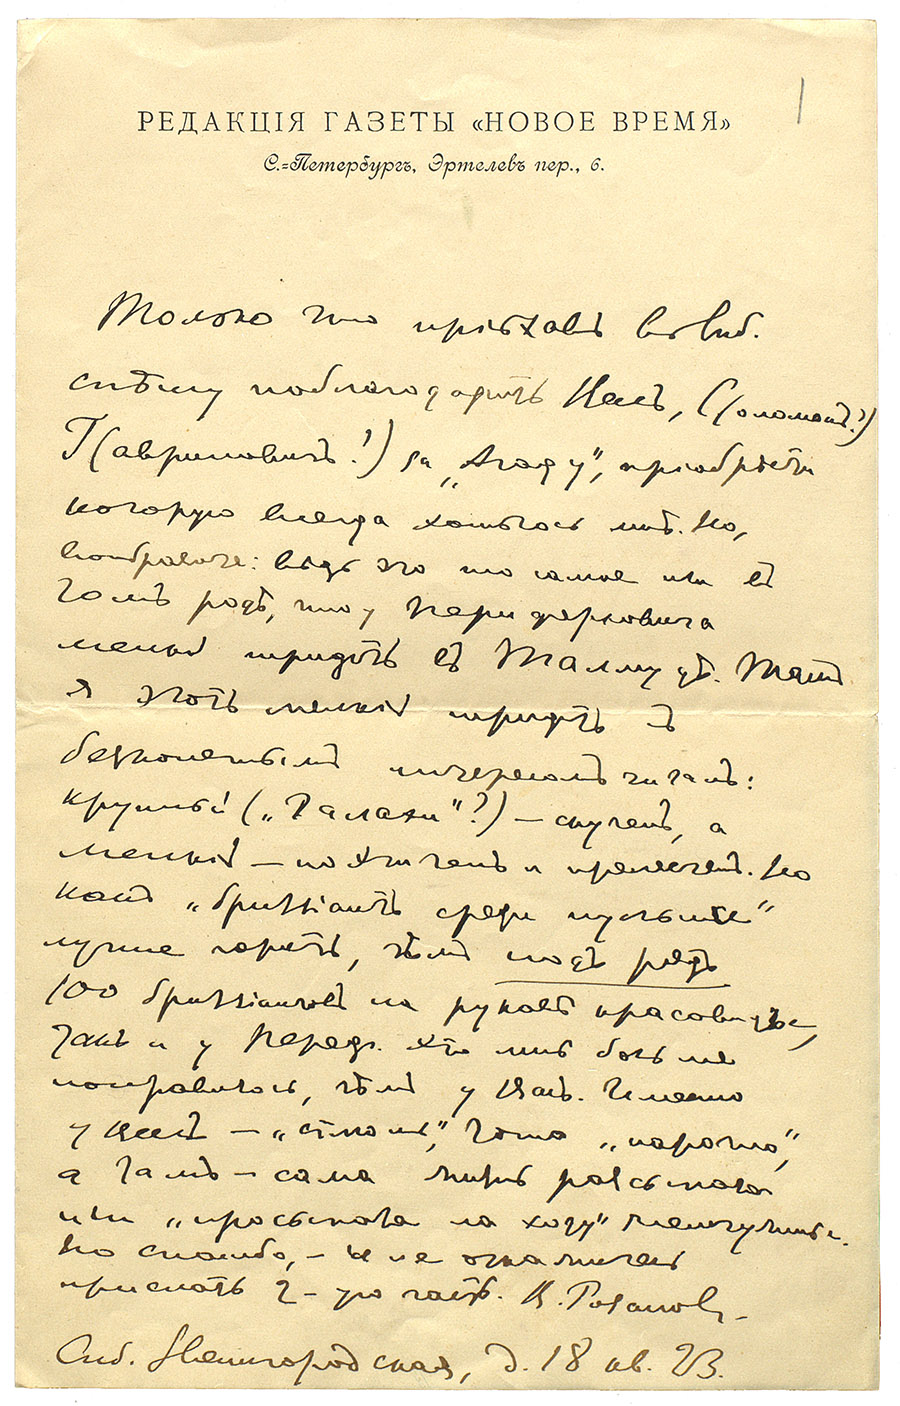 РЕДАКЦІЯ ГАЗЕТЫ «НОВОЕ ВРЕМЯ»
С.=Петербургъ, Эртелевъ пер., 6.
Только что пріѣхавъ въ Спб.
спѣшу поблагодарить Васъ, С(оломонъ?)
Г(авриловичъ!) за „Агаду", пріобрѣсти
которую всегда хотѣлось мнѣ. Но,
вообразите: вѣдь это то самое или въ
томъ родѣ, что у Переферковича
мелкій шрифтъ въ Талмудѣ.
я этотъ мелкій шрифтъ съ
безконечнымъ интересомъ читалъ:
крупный („Галахи"?) – скученъ, а
мелкій – поэтиченъ и прелестенъ. Но
какъ „брилліантъ среди пустыни"
лучше горитъ, чѣмъ подъ рядъ
100 брилліантовъ на рукахъ красавицы,
такъ и у Переф. это мнѣ больше
понравилось, чѣмъ у Васъ. Именно
у Васъ – точно „нарочно",
а тамъ – сама жизнь разсыпала
или „просыпала на ходу" жемчужины.
Но спасибо, – и не откажитесь
прислать 2-ую часть. В. Розановъ
Спб. Звенигородская, д. 18 кв. 23.